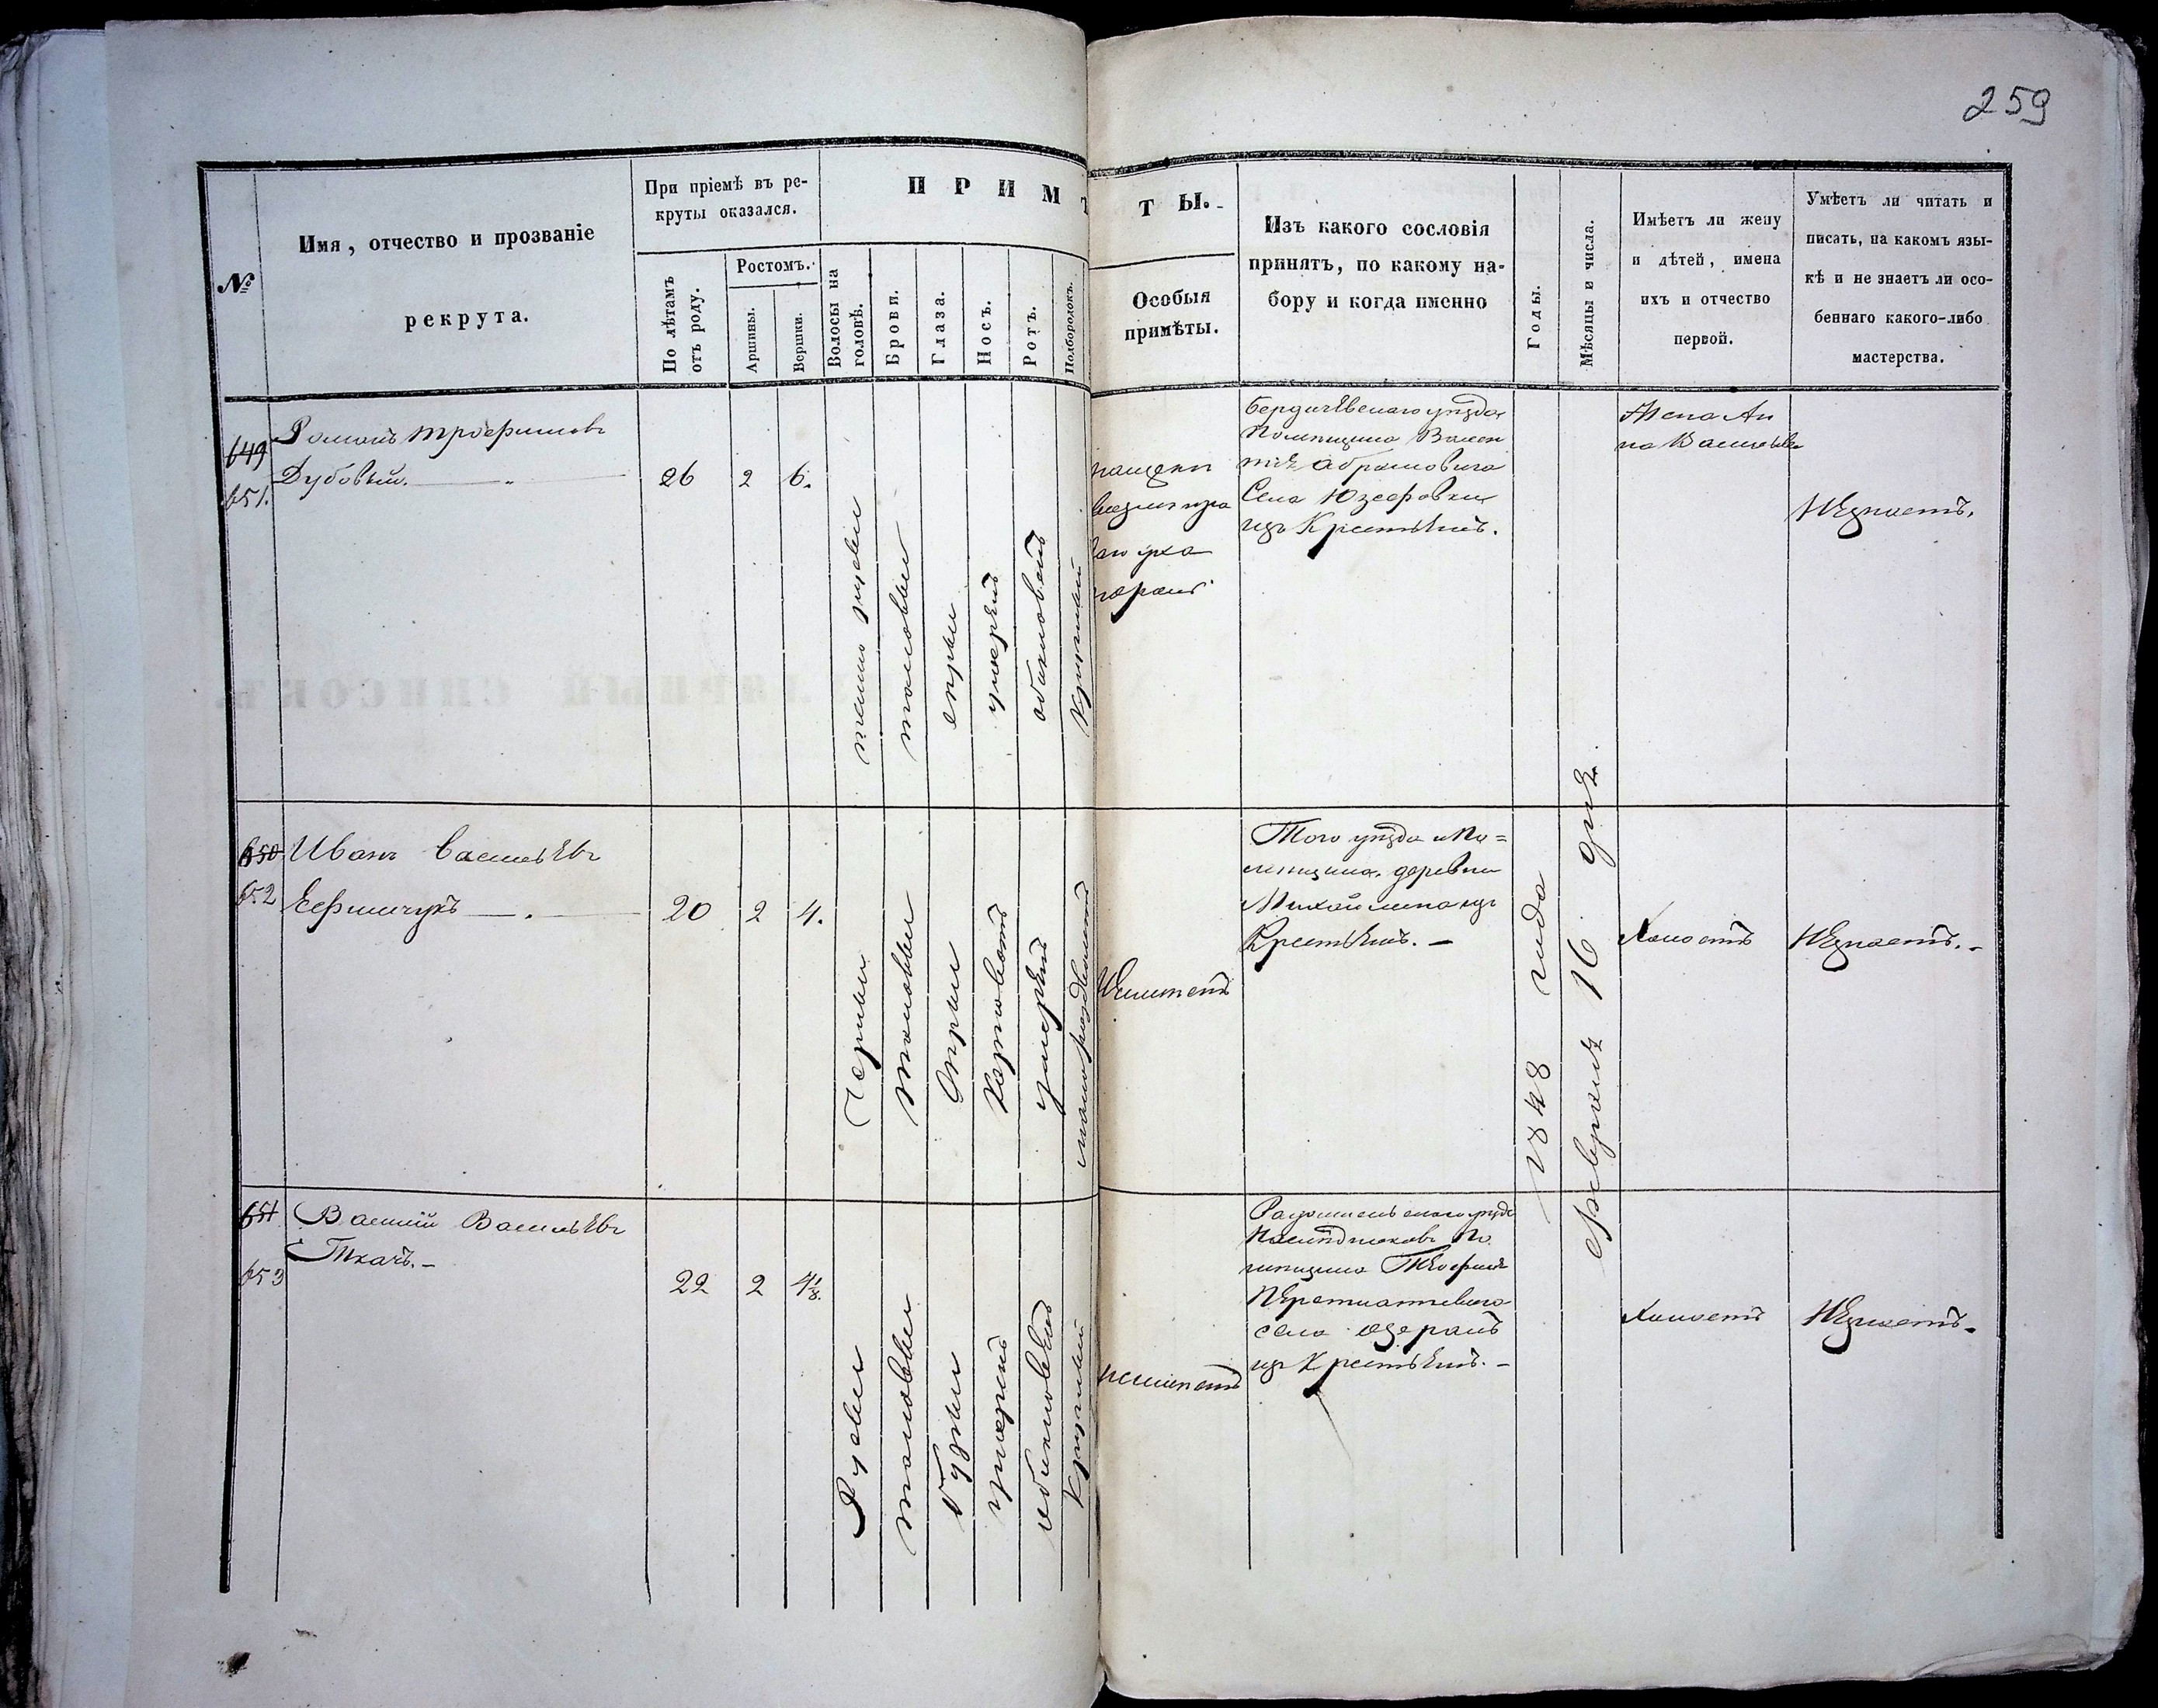 259
№
Имя, отчество и прозваніе
рекрута.
При пріемѣ въ ре-
круты оказался.
По лѣтамъ
отъ роду.
Ростомъ.
Аршины.
Вершки.
ПРИМѢ
Волосы на
головѣ.
Брови.
Глаза.
Носъ.
Ротъ.
Подбородокъ.
ТЫ.
Особыя
примѣты.
Изъ какого сословія
принятъ, по какому на-
бору и когда именно
Годы.
Мѣсяцы и числа.
Имѣетъ ли жену
и дѣтей, имена
ихъ и отчество
первой.
Умѣетъ ли читать и
писать, на какомъ язы-
кѣ и не знаетъ ли осо-
беннаго какого-либо
мастерства.
649
651.
Романъ Трофимовъ
Дубовый.
26
2
6.
темно русыи
таковыи
сѣрыи
умѣрен
обыкновенъ
Круглый
Бердичевскаго уѣзда
Помѣщика Вален
тія Абрамовича
Села Юзефовки
изъ Крестьянъ.
Жена Ан
на Васильева
Незнаетъ.
650
652
Иванъ Васильевъ
Ефимчукъ
20
2
4.
Черныи
таковыи
Сѣрыи
умѣрен
Неимѣетъ
Того уѣзда и По=
мѣщика деревни
Михайлина изъ
Крестьянъ.
1848 года
Февраля 16 дня.
Холостъ
Незнаетъ.
651
653
Василій Васильевъ
Ткачъ.
22
2
4⅛.
Русыи
таковыи
умѣренъ
обыкновенъ
Круглый
неимѣетъ
Радомысльскаго уѣзда
мѣщика Теофила
села Озеранъ
изъ Крестьянъ.
Холостъ
Незнаетъ.